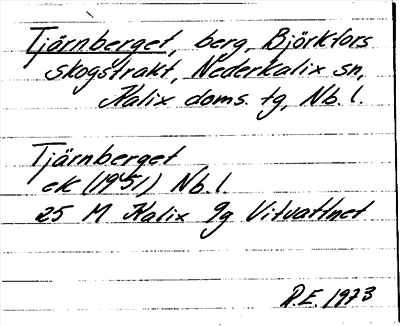 Tjärnberget, berg, Björkfors
skogstrakt, Nederkalix sn,
Kalix doms. tg, Nb. l.
Tjärnberget
ek (1951) Nb. l.
25 M Kalix 9g Vitvattnet
R.E. 1973